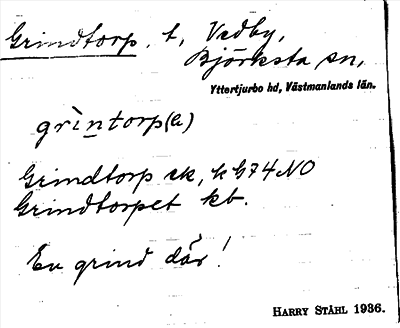 Grindtorp, t, Vedby,
Björksta sn,
Yttertjurbo hd, Västmanlands län.
grìntorp(a)
Grindtorp ek, k G74 NO
Grindtorpet kb.
En grind där!
HARRY STÅHL 1936.